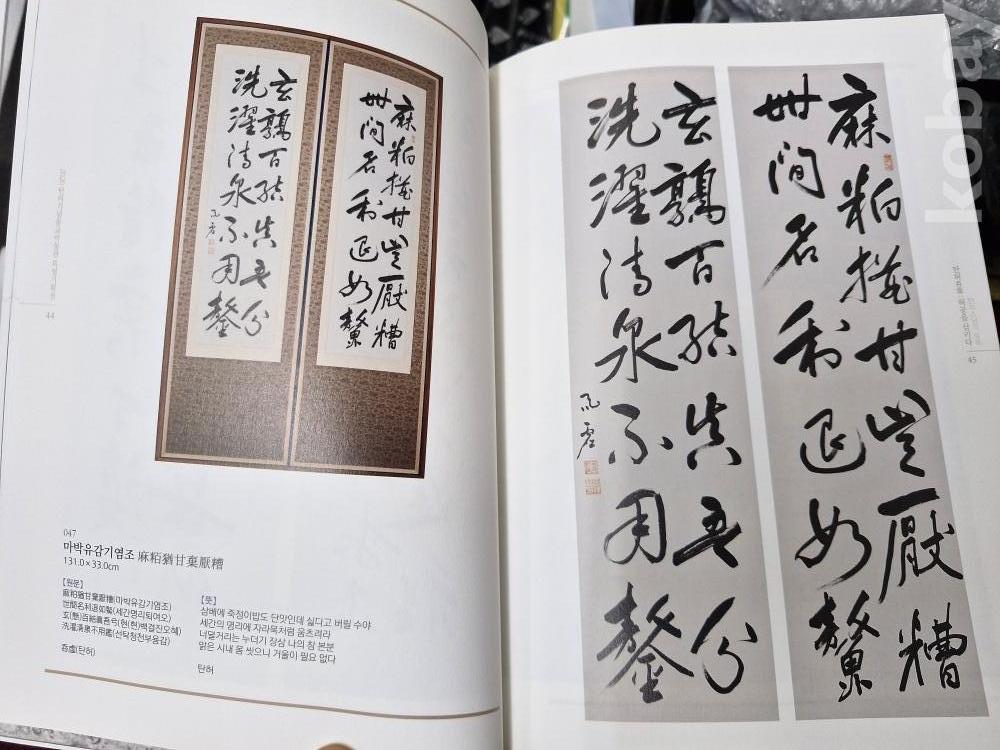 047
마박유감기염조 麻粕猶甘棄厭糟
131.0×33.0cm
【원문】
麻粕猶甘棄厭糟(마박유감기염조)
世間名利退如鰲(세간명리퇴여오)
玄(懸)百結眞吾兮(현(현)백걸진오혜)
洗濯淸泉不用鑑(선탁청천부용감)
呑虛(탄허)
【뜻】
삼베에 죽정이밥도 단맛인데 싫다고 버릴 수야
세간의 명리에 자라목처럼 움츠려라
너덜거리는 누더기 장삼 나의 참 본분
맑은 시내 몸 씻으니 거울이 필요 없다
탄허
44
麻粕猶甘豈厭糟
世間名利退如鰲
玄鶉百結真吾分
洗濯清泉不用
呑虛
麻粕猶甘豈厭糟
世間名利退如鰲
玄鶉百結真吾分
洗濯清泉不用
呑虛
45
kobay